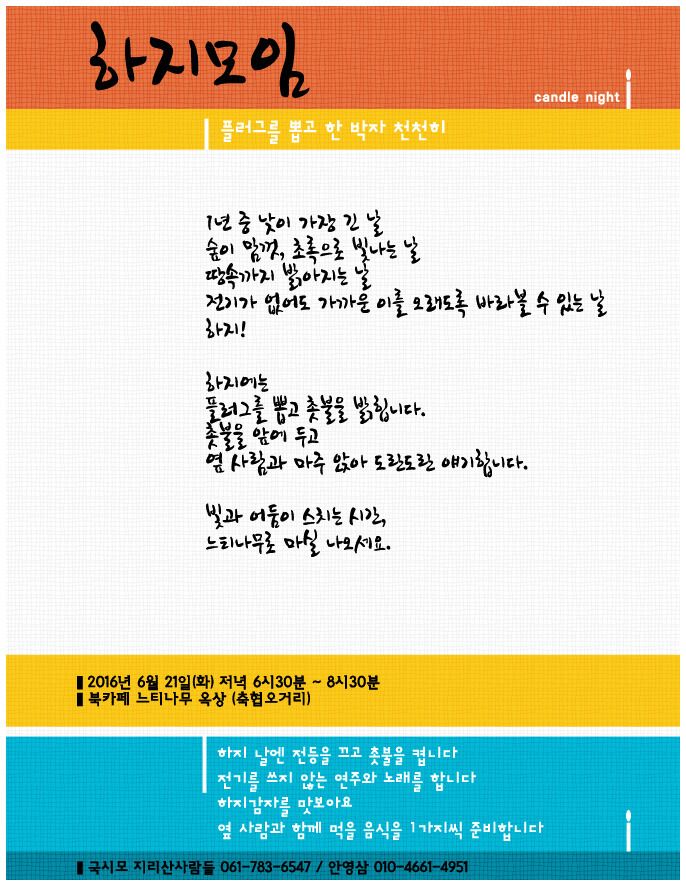 하지모임
candle night
플러그를 뽑고 한 박자 천천히
1년 중 낮이 가장 긴 날
숲이 맘껏, 초록으로 빛나는 날
땅속까지 밝아지는 날
전기가 없어도 가까운 이를 오래도록 바라볼 수 있는 날
하지!
하지에는
플러그를 뽑고 촛불을 밝힙니다.
촛불을 앞에 두고
옆 사람과 마주 앉아 도란도란 얘기합니다.
빛과 어둠이 스치는 시간,
느티나무로 마실 나오세요.
2016년 6월 21일(화) 저녁 6시30분 ~ 8시30분
북카페 느티나무 옥상 (축협오거리)
하지 날엔 전등을 끄고 촛불을 켭니다
전기를 쓰지 않는 연주와 노래를 합니다
하지감자를 맛보아요
옆 사람과 함께 먹을 음식을 1가지씩 준비합니다
국시모 지리산사람들 061-783-6547 / 안영삼 010-4661-4951